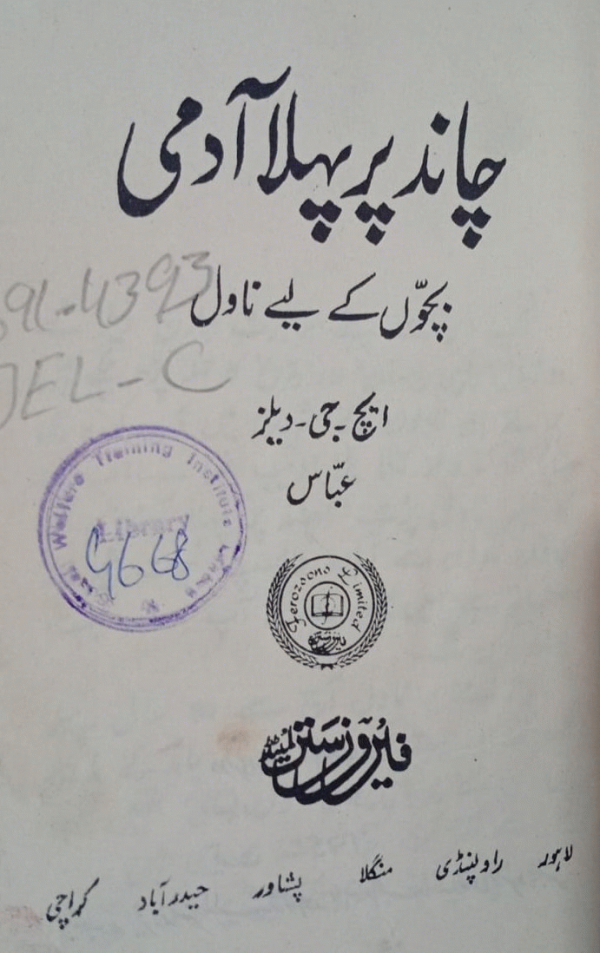 چاند پر پہلا آدمی
بچّوں کے لیے ناول
91-4393
JEL-C
ایچ۔جی۔ویلز
عبّاس
Welfare Training Institute
Library
9668
Ferozsons Limited
فیروز سنز
فیروز سنز لمیٹڈ
لاہور راولپنڈی منگلا پشاور حیدرآباد کراچی